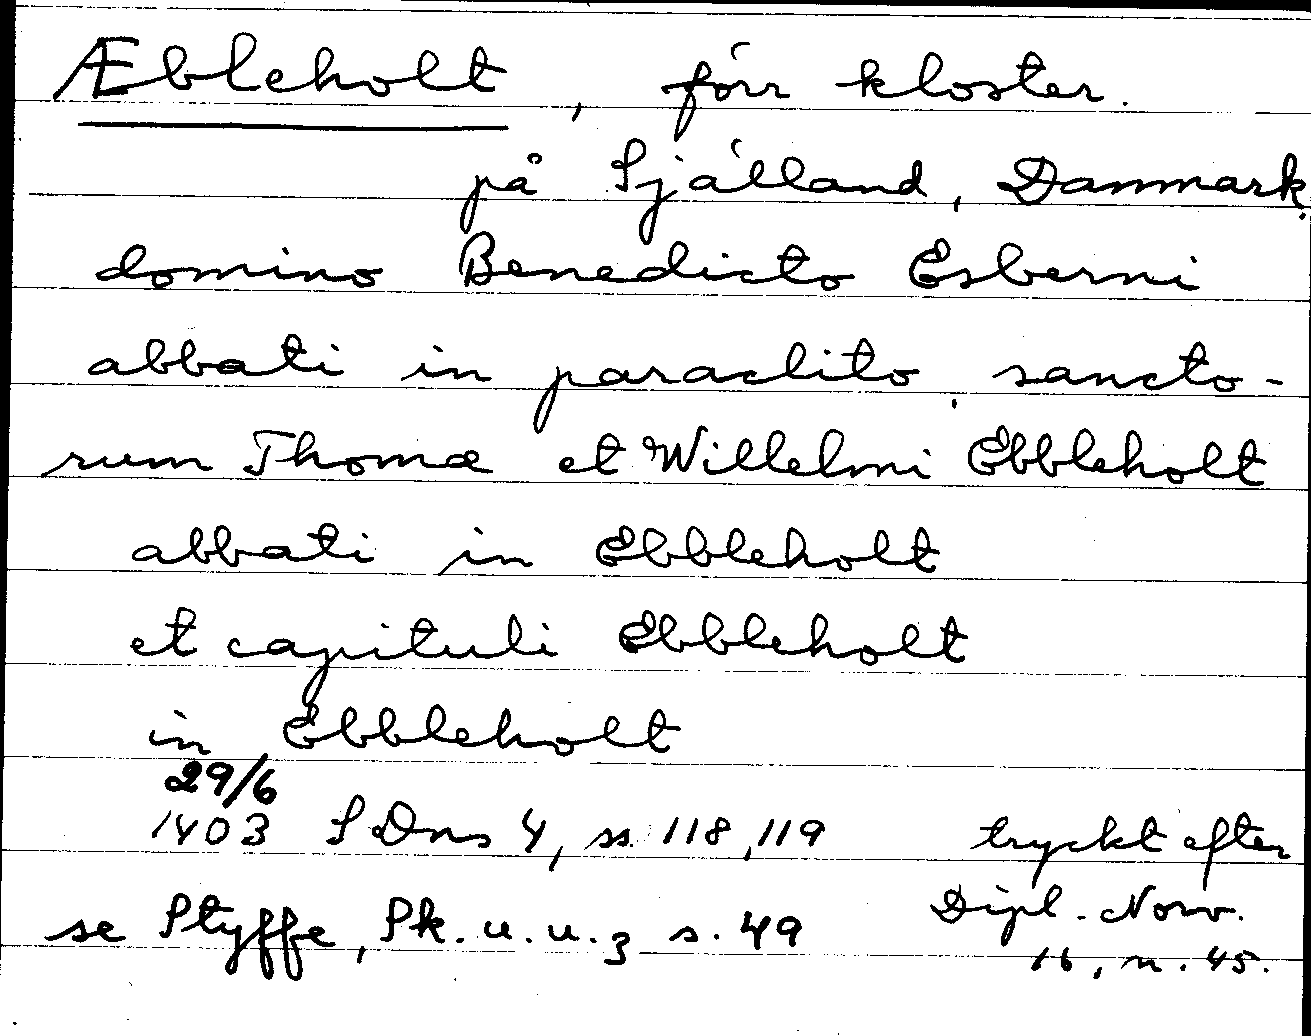 Æbleholt, förr kloster.
på Själland, Danmark.
domino Benedicto Esberni
abbati in paraclito sancto-
rum Thomæ et Willelmi Ebbleholt
abbati in Ebbleholt
et capituli Ebbleholt
in Ebbleholt
29/6
1403 SDns 4, ss. 118, 119 tryckt efter
Dipl. Norv.
se Styffe, Sk. u. u. 3 s. 49
16, n. 45.